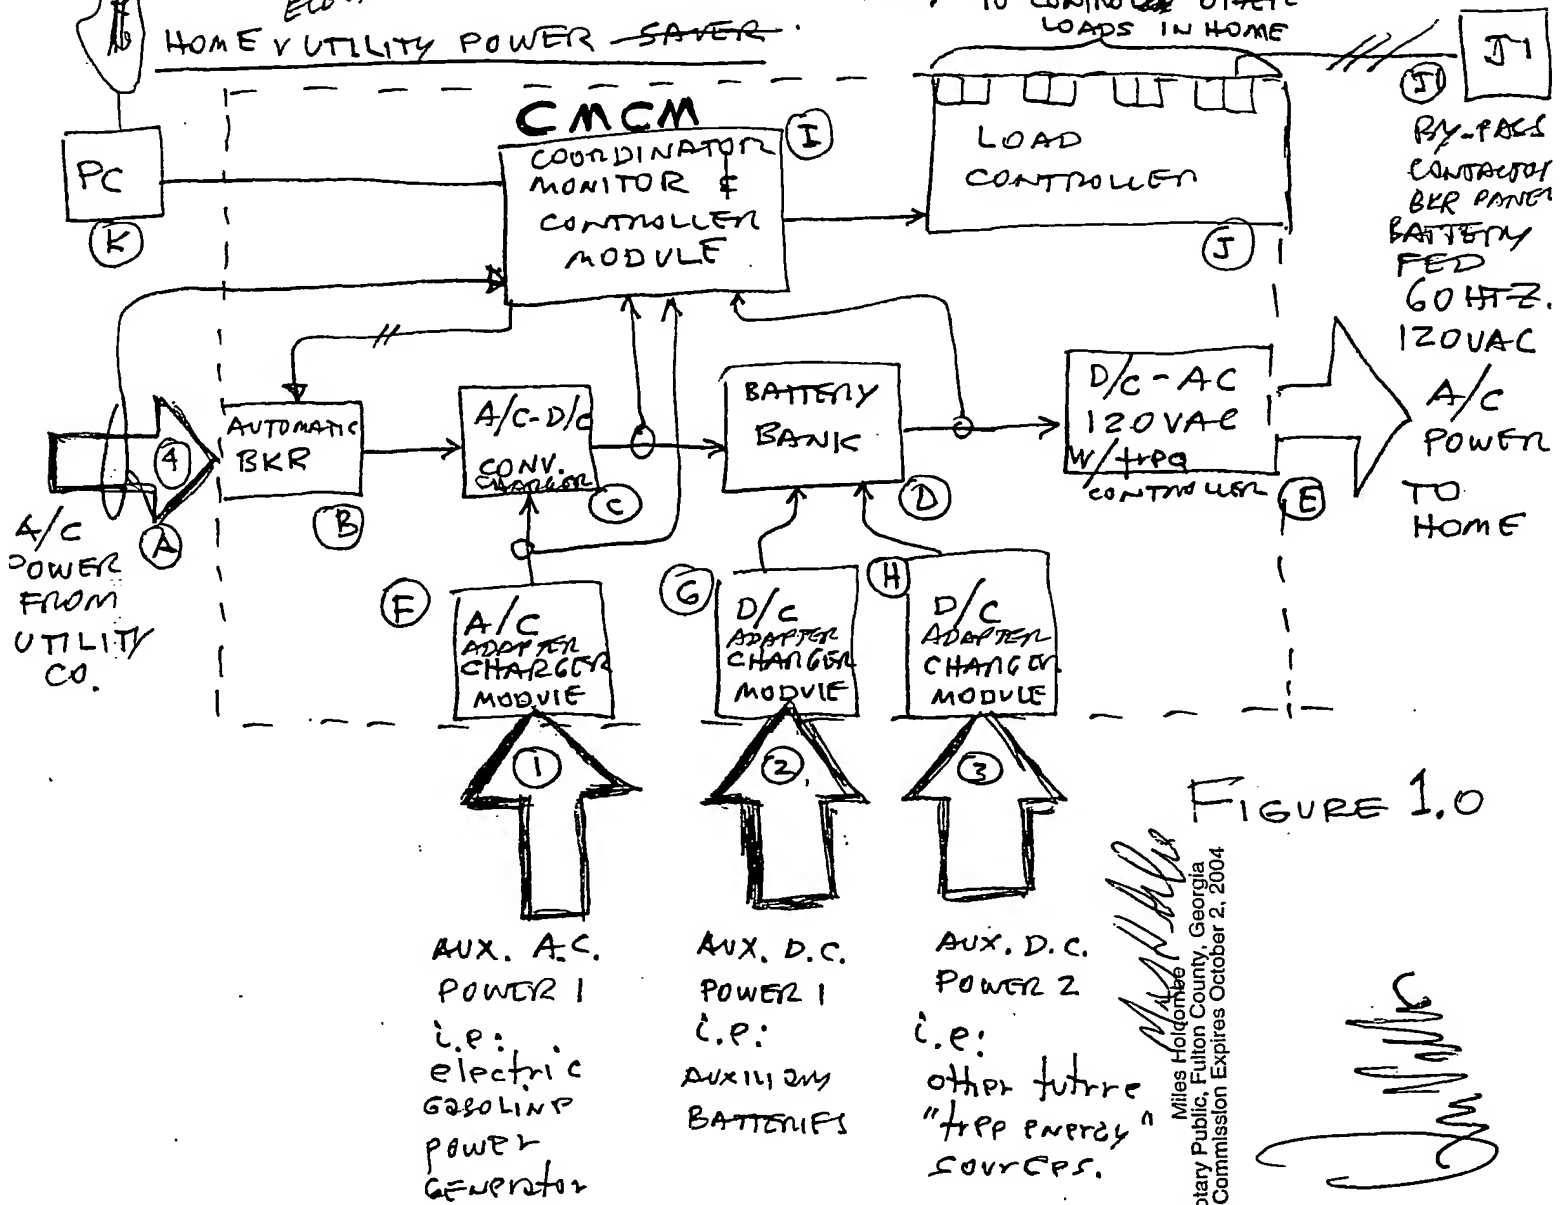 HOME & UTILITY POWER SAVER.
TO CONTROL OTHER
LOADS IN HOME
J1
J1
BY-PASS
CONTACTOR
BKR PANEL
BATTERY
FED
60 HTZ.
120VAC
CMCM
COORDINATOR
MONITOR &
CONTROLLER
MODULE
I
LOAD
CONTROLLER
J
PC
K
4
A
A/C
POWER
FROM
UTILITY
CO.
AUTOMATIC
BKR
B
A/C-D/C
CONV.
CHARGER
C
BATTERY
BANK
D
D/C-AC
120VAC
W/freq
CONTROLLER
E
A/C
POWER
TO
HOME
F
A/C
ADAPTER
CHARGER
MODULE
G
D/C
ADAPTER
CHARGER
MODULE
H
D/C
ADAPTER
CHARGER
MODULE
1
2
3
FIGURE 1.0
AUX. A.C.
POWER 1
i.e:
electric
GASOLINE
power
Generator
AUX. D.C.
POWER 1
i.e:
AUXILIARY
BATTERIES
AUX. D.C.
POWER 2
i.e:
other future
"free energy"
sources.
Miles Holcombe
otary Public, Fulton County, Georgia
Commission Expires October 2, 2004